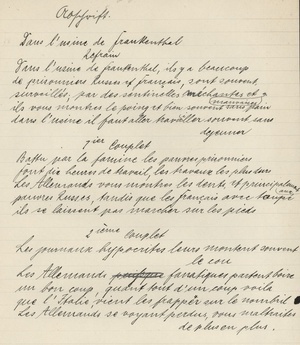 Refrain
Dans l'usine de Frankenthal
Refrain
Dans l'usine de frankenthal, il y a beaucoup
de prisonniers Russes et français, sont souvent
surveillés, par des sentinelles méchantes et
mauvaises
ils vous montres le poing et bien souvent sans pain
dans l'usine il faut aller travailler souvent sans
dejeuner
1ier Couplet
Battu par la famine les pauvres prisonniers
font dix heures de travail, les travaux les plus durs
Les Allemands vous montres les dents et principalement
aux
pauvres Russes, tandis que les français avec
ils se laissent pas marcher sur les pieds
2ième Couplet
Les journaux hypocrites leurs montent souvent
le cou
Les Allemands fanatiques partent boire
un bon coup, quant tout d'un coup voila
que l'Italie, vient les frapper sur le nombril
Les Allemands se voyant perdus, vous maltraites
de plus en plus.